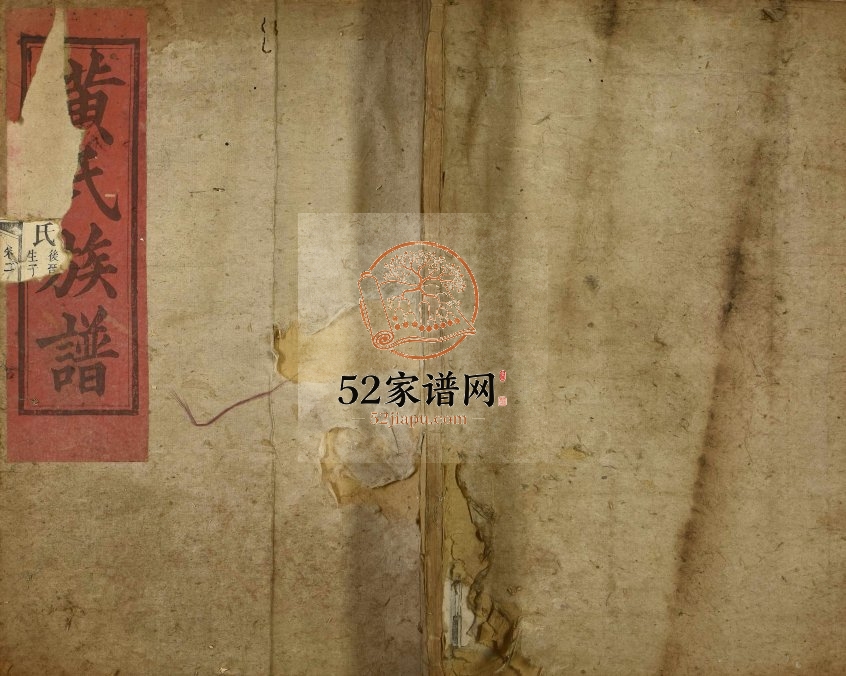 黃氏族譜
氏
後晉
生于
52家谱网
52jiapu.com